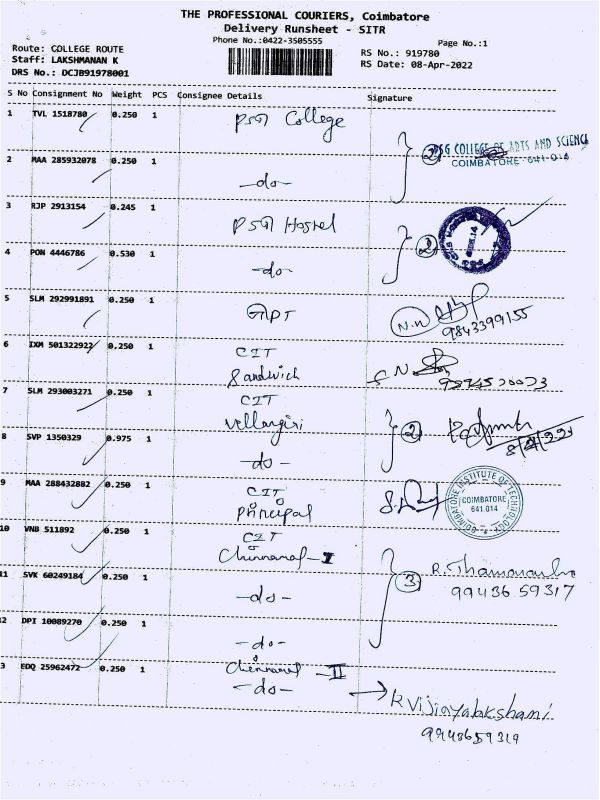 THE PROFESSIONAL COURIERS, Coimbatore
Delivery Runsheet - SITR
Phone No.:0422-3505555
Page No.:1
Route: COLLEGE ROUTE
Staff: LAKSHMANAN K
DRS No.: DCJB91978001
RS No.: 919780
RS Date: 08-Apr-2022
S No Consignment No Weight PCS Consignee Details Signature
1 TVL 1518780 0.250 1 PSG College
2 PSG COLLEGE OF ARTS AND SCIENCE
COIMBATORE 641 014
2 MAA 285932078 0.250 1
-do-
3 RJP 2913154 0.245 1 PSG Hostel
2
4 PON 4446786 0.530 1
-do-
5 SLM 292991891 0.250 1 GPT
N.N 9843399155
6 IXM 501322922 0.250 1 CIT
Sandwich
7 SLM 293003271 0.250 1 CIT
Vellangiri
2
8 SVP 1350329 0.975 1
-do-
9 MAA 288432882 0.250 1 CIT
Principal
COIMBATORE INSTITUTE OF TECHNOLOGY
COIMBATORE
641.014
10 VNB 511892 0.250 1 CIT
Chinnamal - I
3
99436 59317
11 SVK 60249184 0.250 1
-do-
12 DPI 10089270 0.250 1
-do-
3 EDQ 25962472 0.250 1 Chinnamal - II
-do-
R Vijayalakshami
9943659319